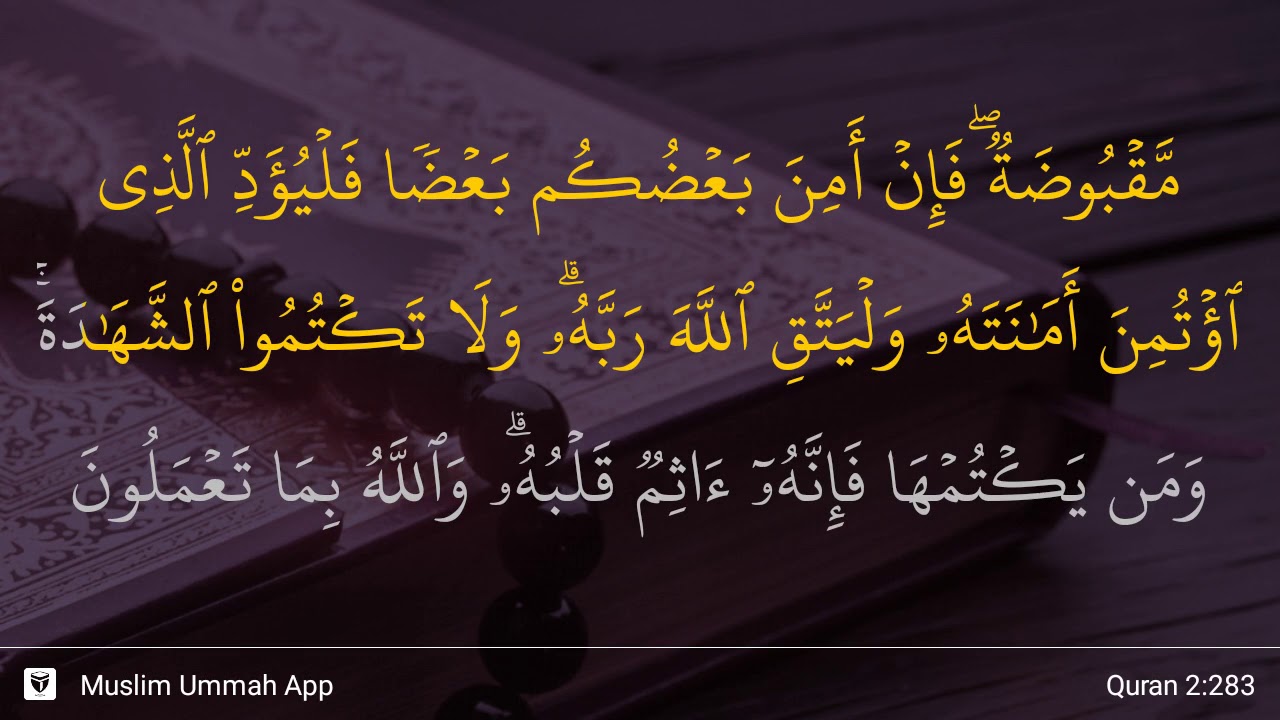 مَّقۡبُوضَةٌۖ فَإِنۡ أَمِنَ بَعۡضُكُم بَعۡضٗا فَلۡيُؤَدِّ ٱلَّذِى
ٱؤۡتُمِنَ أَمَٰنَتَهُۥ وَلۡيَتَّقِ ٱللَّهَ رَبَّهُۥۗ وَلَا تَكۡتُمُواْ ٱلشَّهَٰدَةَۚ
وَمَن يَكۡتُمۡهَا فَإِنَّهُۥٓ ءَاثِمٌ قَلۡبُهُۥۗ وَٱللَّهُ بِمَا تَعۡمَلُونَ
Muslim Ummah App
Quran 2:283